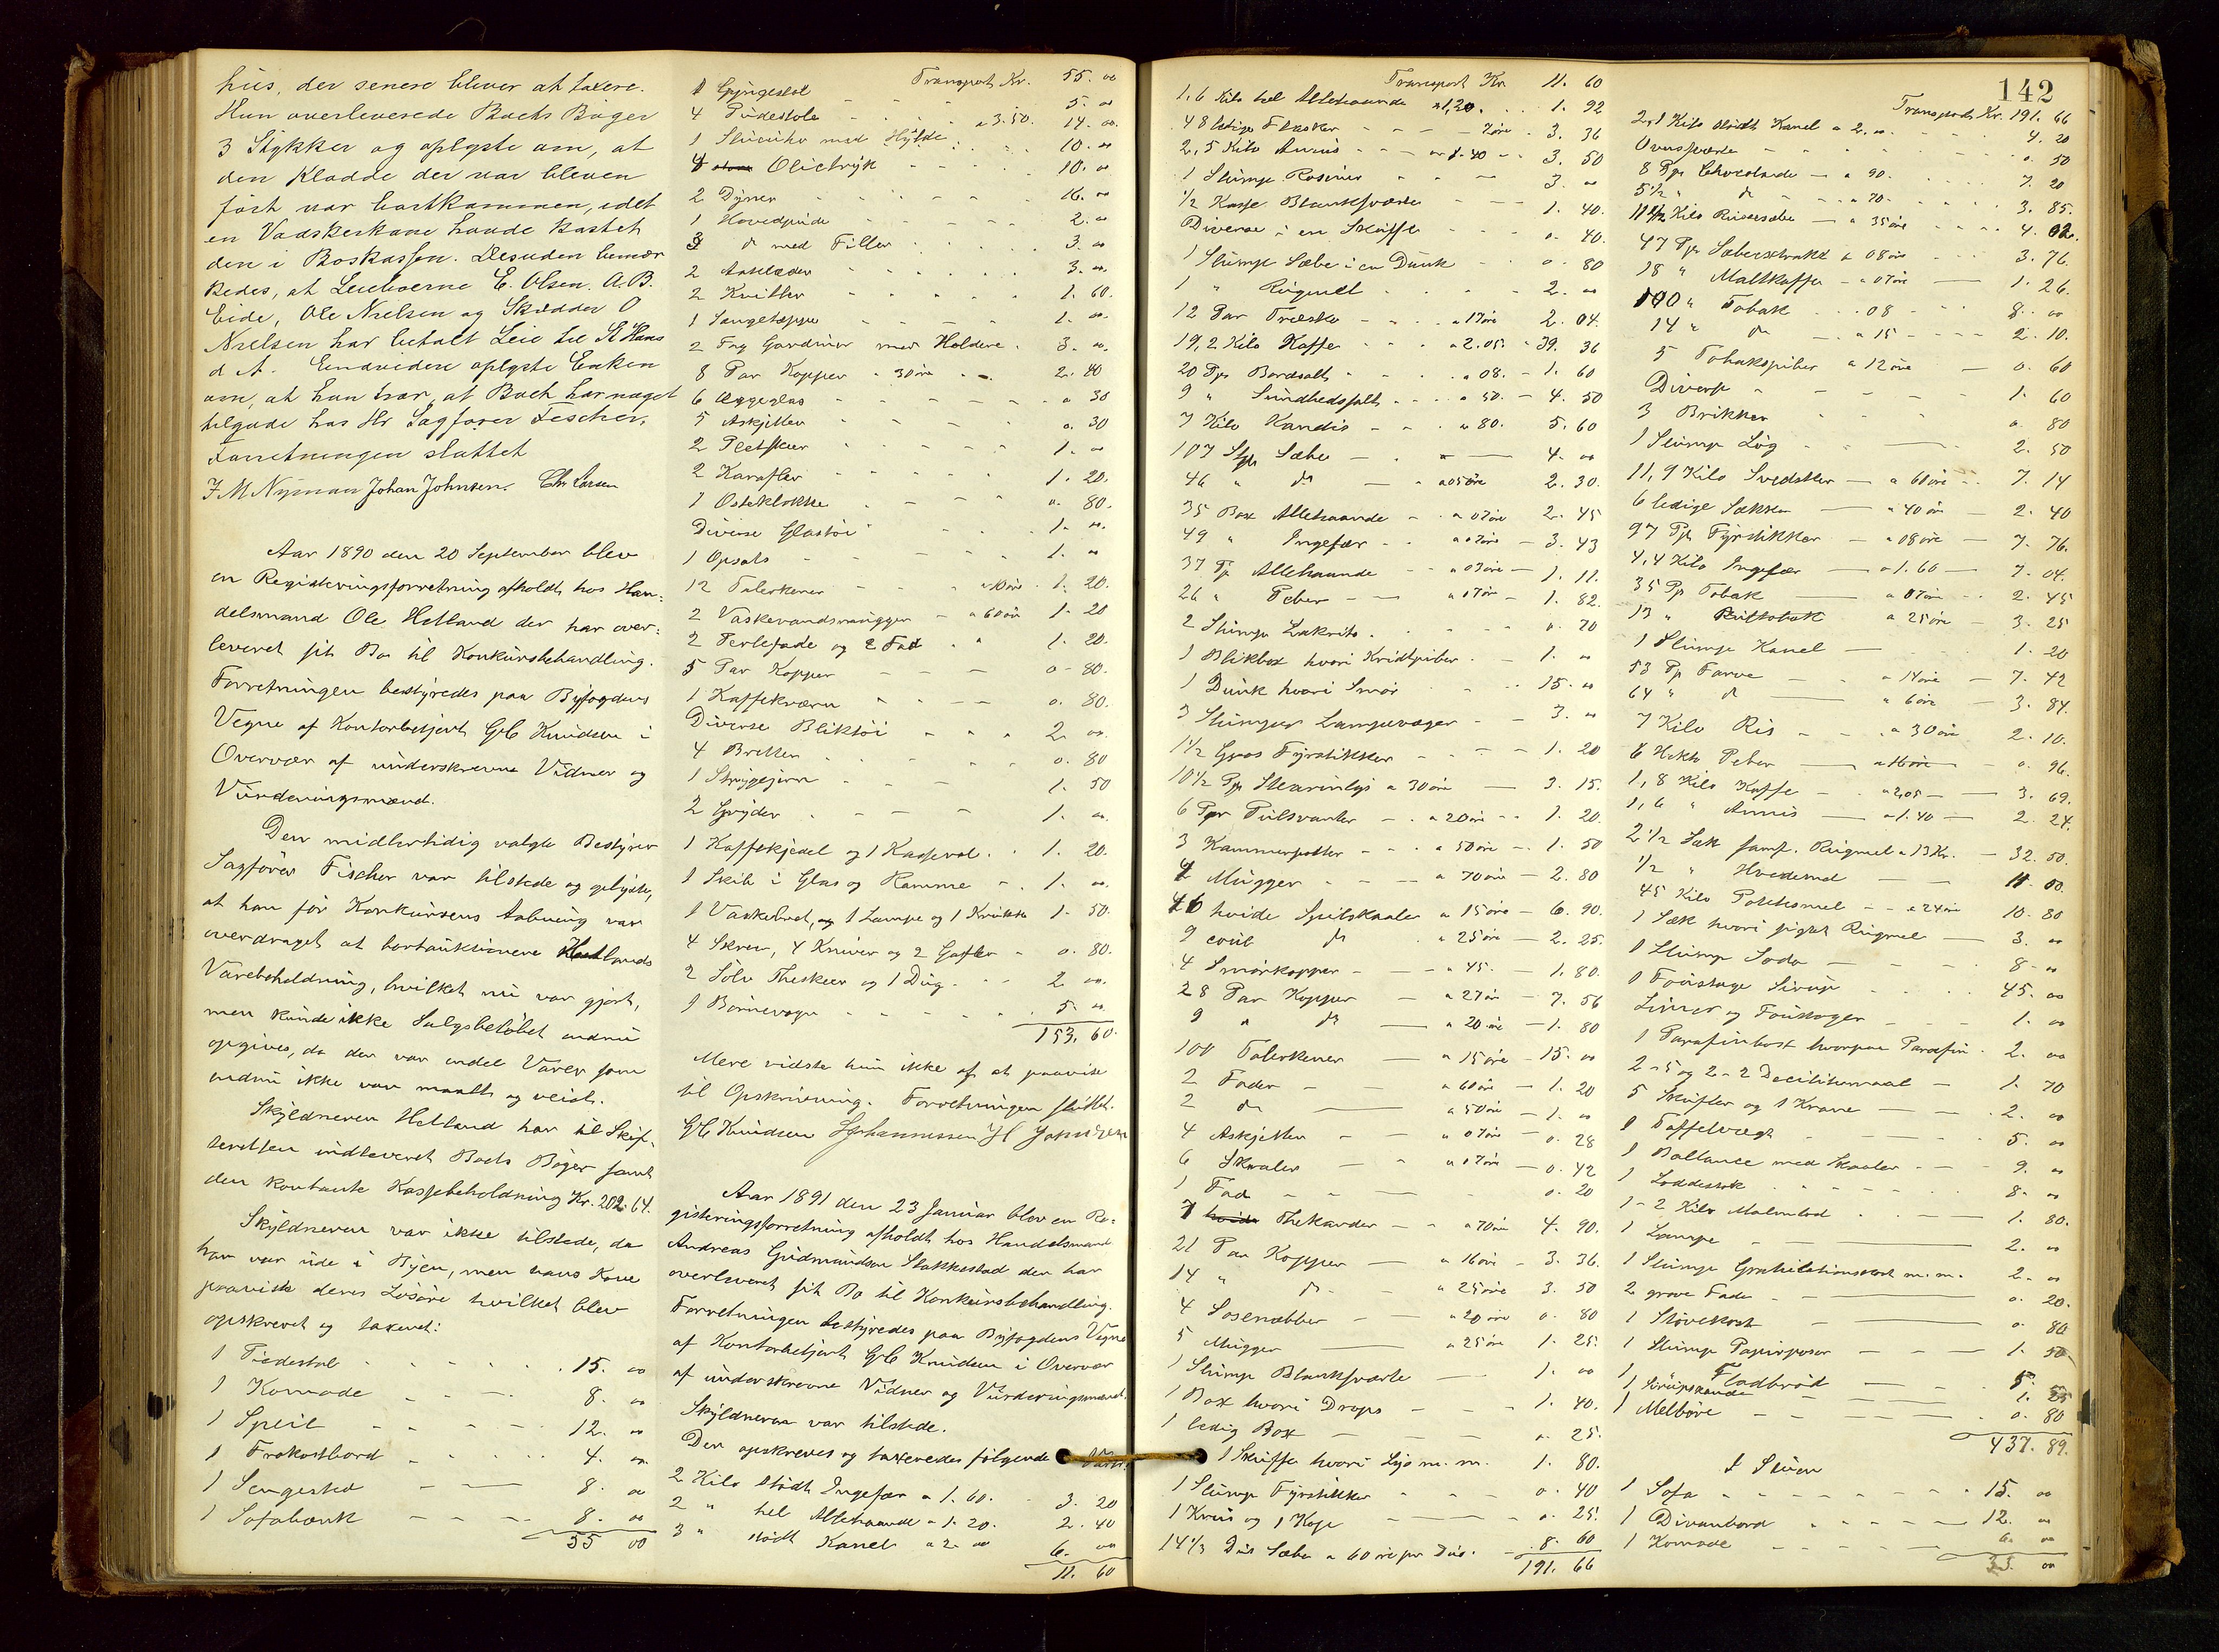 hus, der senere bliver at taxere.
Hun overleverede Boets Bøger
3 Stykker og oplyste om, at
den Kladde der var bleven
ført var bortkommen, idet
en Vadskerkone havde kastet
den i Boskassen. Desuden bemær
kedes, at Leieboerne E. Olsen. A.B.
Eide, Ole Nielsen og Skrædder O
Nielsen har betalt Leie til St Hans
d A. Endvidere oplyste Enken
om, at hun tror, at Boet har noget
tilgode hos Hr Sagfører Fischer.
Forretningen sluttet
J M Nyman Johan Johnsen. Chr Larsen
Aar 1890 den 20 September blev
en Registreringsforretning afholdt hos Han-
delsmand Ole Hetland der har over-
leveret sit Bo til Konkursbehandling.
Forretningen bestyredes paa Byfogdens
Vegne af Kontorbetjent G C Knudsen i
Overvær af underskrevne Vidner og
Vurderingsmænd.
Den midlertidig valgte Bestyrer
Sagfører Fischer var tilstede og oplyste,
at han før Konkursens Aabning var
overdraget at bortauktionere Hetlands
Varebeholdning, hvilket nu var gjort,
men kunde ikke Salgsbeløbet endnu
opgives, da der var endel Varer som
endnu ikke var maalt og veiet.
Skyldneren Hetland har til Skif-
teretten indleveret Boets Bøger samt
den kontante Kassebeholdning Kr. 202.64.
Skyldneren var ikke tilstede, da
han var ude i Byen, men hans Kone
paaviste deres Løsøre hvilket blev
opskrevet og taxeret:
1 Piedestal 15. 00
1 Komode 8. 00
1 Speil 12. 00
1 Frokostbord 4. 00
1 Sengested 8. 00
1 Sofabænk 8. 00
55 00
Transport Kr. 55. 00
1 Gyngestol 5. 00
4 Pudestole a 3.50. 14. 00.
1 med Hylde 10. 00
4 Olietryk 10. 00
2 Dyner 16. 00
1 Hovedpude 2. 00
3 do med Filler 3. 00
2 3. 00.
2 Kvitler 1. 60.
1 Sengetæppe 1. 00.
2 Fag Gardiner med Holdere. 3. 00.
8 Par Kopper a 30 øre 2. 40
6 Æggeglas 0 30
5 Askjetter 0. 30
2 1. 00
2 Karafler 1. 20.
1 Osteklokke 0. 80.
Diverse Glastøi 1. 00.
1 Opsats 1. 00
12 Talerkener a 10 øre 1. 20.
2 Vaskevandsmugger a 60 øre 1. 20
2 Terlefade og 2 Fad 1. 20.
5 Par Kopper 0. 80.
1 Kaffekværn 0. 80.
Diverse Bliktøi 2. 00.
4 Bretter 0. 80
1 Strygejern 1. 50
2 Gryder 1. 00.
1 Kaffekjedel og 1 Kasserol 1. 20.
1 Skib i Glas og Ramme 1. 00.
1 Vaskebret, og 1 Lampe og 1 Krukke 1. 50.
4 Skeer, 4 Kniver og 2 Gafler 0. 80.
2 Sølv Theskeer og 1 Dug 2. 00.
1 Børnevogn 5. 00
153. 60.
Mere vidste hun ikke af at paavise
til Opskrivning. Forretningen sluttet.
G C Knudsen S Johannessen H Johnsen
Aar 1891 den 23 Januar blev en Re-
gistreringsforretning afholdt hos Handelsmand
Andreas Gudmundsen Stakkestad der har
overleveret sit Bo til Konkursbehandling.
Forretningen bestyredes paa Byfogdens Vegne
af Kontorbetjent G C Knudsen i Overvær
af underskrevne Vidner og Vurderingsmænd.
Skyldneren var tilstede.
Der opskreves og taxeredes følgende Varer.
2 Kilo stødt Ingefær a 1.60. 3. 20
2 " hel Allehaande a 1.20. 2. 40
3 " stødt Kanel a 2. 00 6. 00
11. 60
Transport Kr 11. 60
1,6 Kilo hel Allehaande a 1,20. 1. 92
48 ledige Flasker 7 øre 3. 36
2,5 Kilo Annis a 1.40 3. 50
1 Slump Rosiner 3. 00
1/2 Kasse Blanksværte 1. 40.
Diverse i en Skuffe 0. 40.
1 Slump Sæbe i en Dunk 0. 80
1 " Rugmel 2. 00
12 Par Træsko a 17 øre 2. 04.
19,2 Kilo Kaffe a 2.05. 39. 36
20 Ppr Bordsalt a 08. 1. 60
9 " Sundhedssalt a 50. 4. 50
7 Kilo Kandis a 80. 5. 60
107 Stk Sæbe 4. 00
46 " do a 05 øre 2. 30.
35 Box Allehaande a 07 øre 2. 45
49 " Ingefær a 07 øre 3. 43
37 Pp Allehaande a 03 øre 1. 11.
26 " Peber a 07 øre 1. 82.
2 Slumper Lakrits 0. 70
1 Blikbox hvori Kridtpiber 1. 00
1 Dunk hvori Smør 15. 00
3 Slumper Lampevæger 3. 00
1 1/2 Gros Fyrstikker 1. 20
10 1/2 Pp Stearinlys a 30 øre 3. 15.
6 Par Pulsvanter a 20 øre 1. 20.
3 Kammerpotter a 50 øre 1. 50
4 Mugger a 70 øre 2. 80
46 hvide Spilskaaler a 15 øre 6. 90.
9 do a 25 øre 2. 25.
4 Smørkopper a 45. 1. 80.
28 Par Kopper a 27 øre 7. 56
9 " do a 20 øre 1. 80
100 Talerkener a 15 øre 15. 00
2 Fader a 60 øre 1. 20
2 do a 50 øre 1. 00
4 Askjetter a 07 øre 0. 28
6 Skaaler a 07 øre 0. 42
1 Fad 0. 20
7 Thekander a 70 øre 4. 90.
21 Par Kopper a 16 øre 3. 36.
14 " do a 25 øre 3. 50
4 Sosenæbber a 20 øre 0. 80
5 Mugger a 25 øre 1. 25.
1 Slump Blanksværte 1. 00
1 Box hvori Drops 1. 40.
1 ledig Box 0. 25.
1 Skuffe hvori Lys m. m. 1. 80.
1 Slump Fyrstikker 0. 40
1 Krus og 1 Kop 0. 25.
14 1/3 Dus Sæbe a 60 øre pr Dus. 8. 60
191. 66
142
Transport Kr. 191. 66
2,1 Kilo stødt Kanel a 2. 00 4. 20
Ovnsværte 0. 50
8 Pp Chocolade a 90. 7. 20
5 1/2 " do a 70. 3. 85.
11 1/2 Kilo a 35 øre 4. 02.
47 Pp Sæbeextrakt a 08 øre 3. 76.
18 " Maltkaffe a 07 øre 1. 26.
100 " Tobak 08 8. 00
14 " do a 15 2. 10.
5 Tobakspiber a 12 øre 0. 60
Diverse 1. 60
3 Brikker 0. 80
1 Slump Løg 2. 50
11,9 Kilo Svedsker a 60 øre 7. 14
6 ledige Sækker a 40 øre 2. 40
97 Pp Fyrstikker a 08 øre 7. 76.
4,4 Kilo Ingefær a 1.60 7. 04.
35 Pp Tobak a 07 øre 2. 45
13 " Rultobak a 25 øre 3. 25
1 Slump Kanel 1. 20
53 Pp Farve a 14 øre 7. 42
64 " do a 6 øre 3. 84.
7 Kilo Ris a 30 øre 2. 10.
6 Hekto Peber a 16 øre 0. 96.
1,8 Kilo Kaffe a 2.05 3. 69.
1,6 " Annis a 1.40 2. 24.
2 1/2 Sæk Rugmel a 13 Kr. 32. 50.
1/2 " Hvedemel 11. 00.
45 Kilo Potetesmel a 24 øre 10. 80
1 Sæk hvori sigtet Rugmel 3. 00
1 Slump Soda 8. 00
1 Foustage Sirup 45. 00
Limer og Foustager 1. 00
1 Parafinkost hvorpaa Parafin 2. 00
2 - 5 og 2 - 2 Decilitermaal 1. 70
5 Skufler og 1 Krane 2. 00
1 Taffelvægt 5. 00
1 Ballance med Skaaler 9. 00
1 Loddestok 8. 00
1 - 2 Kilo Malmlod 1. 80.
1 Lampe 2. 00
1 Slump Gratulationskort m.m. 2. 00
2 grove Fade 0. 20.
1 Støvekost 0. 80
1 Slump Papirposer 1. 50
1 Fladbrød 5. 00
1 Sirupskande 1. 25
1 Melbøre 0. 80
437. 89.
I Stuen
1 Sofa 15. 00
1 Divanbord 12. 00
1 Komode 6. 00
33. 00